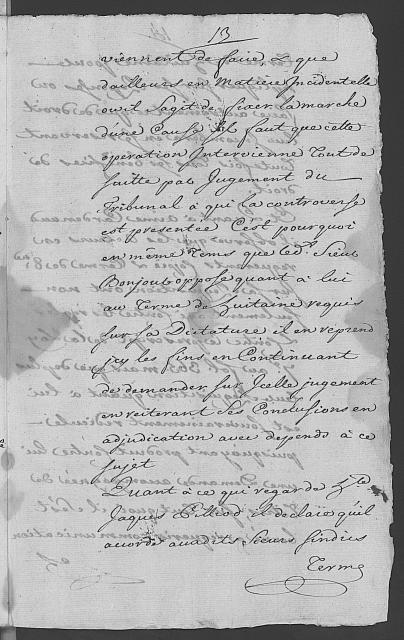 13
viennent de faire, & que
dailleurs en Matiere Incidentelle
ou il Sagit de fixer la marche
dune Cause Il faut que cette
operation Intervienne Tout de
suitte par Jugement du
Tribunal à qui la controverse
est presentée C'est pourquoi
en même Tems que led. Sieur
Bonjour oppose quant à lui
au Terme de huitaine requis
sur sa Dictature il en reprend
icy les fins en Continuant
de demander sur Icelle jugement
en reiterant Ses Conclusions en
adjudication avec depends à ce
sujet
Quant à ce qui regarde
Jaques Pilliod il declare qu'il
accorde auxdits Sieurs Sindics
Terme